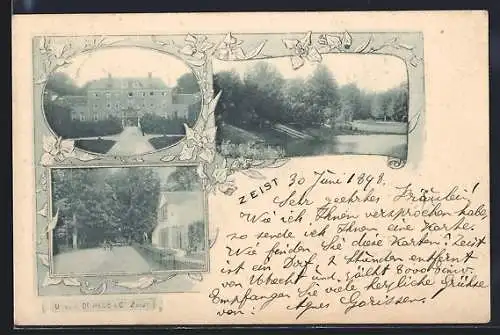 ZEIST
30 Juni 1898.
Sehr geehrtes Fräulein!
Wie ich Ihnen versprochen habe,
so sende ich Ihnen eine Karte.
Wie finden Sie diese Karten? Zeist
ist ein Dorf, 2 Stunden entfernt
von Utrecht und zählt 8000 Einw.
Empfangen Sie viele herzliche Grüsse
von: Agnes Gorissen.